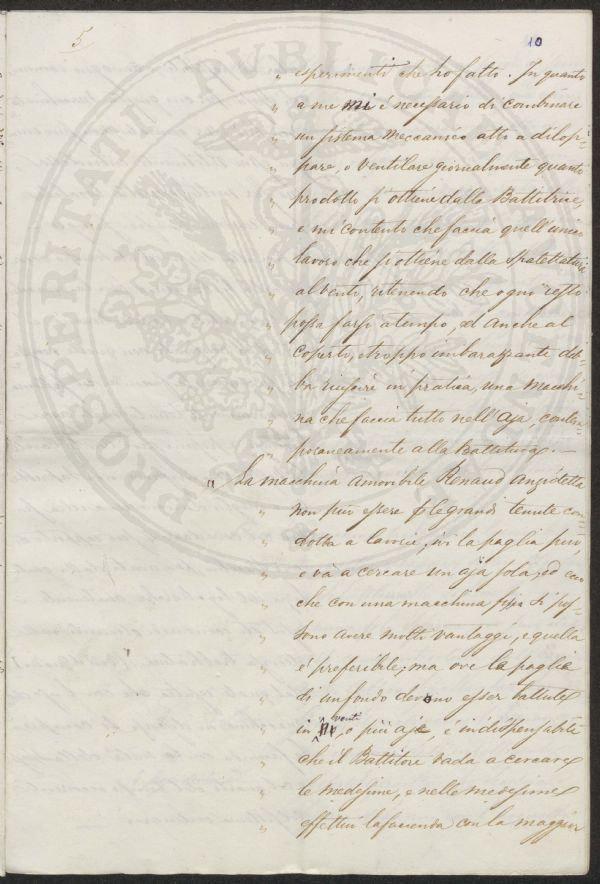 5
10
„ esperimenti che ho fatto. In quanto
„ a me mi é necessario di combinare
„ un sistema meccanico atto a dilop-
„ pare, o ventilare giornalmente quanto
„ prodotto si ottiene dalla Battitrice,
„ e mi contento che faccia quell'unico
„ lavoro che si ottiene dalla Spalettatura
„ al vento, ritenendo che ogni resto
„ possa farsi a tempo, ed anche al
„ coperto, troppo imbarazzante deb-
„ ba riuscire in pratica, una macchi-
„ na che faccia tutto nell'aja, contem-
„ poraneamente alla Battitura. —
„ La macchina amovibile Renaud
„ non può essere per le grandi tenute con-
„ dotta a lavoro, ivi la paglia
„ e và a cercare un aja sola, ed ecco
„ che con una macchina fissa si pos-
„ sono avere molti vantaggi, e quella
„ é preferibile; ma ove la paglia
„ di un fondo devono esser battute
„ in venti, o più aje, é indispensabile
„ che il Battitore vada a cercare
„ le medesime, e nelle medesime
„ effettui la facienda con la maggior
PROSPERITATI PVBLICAE